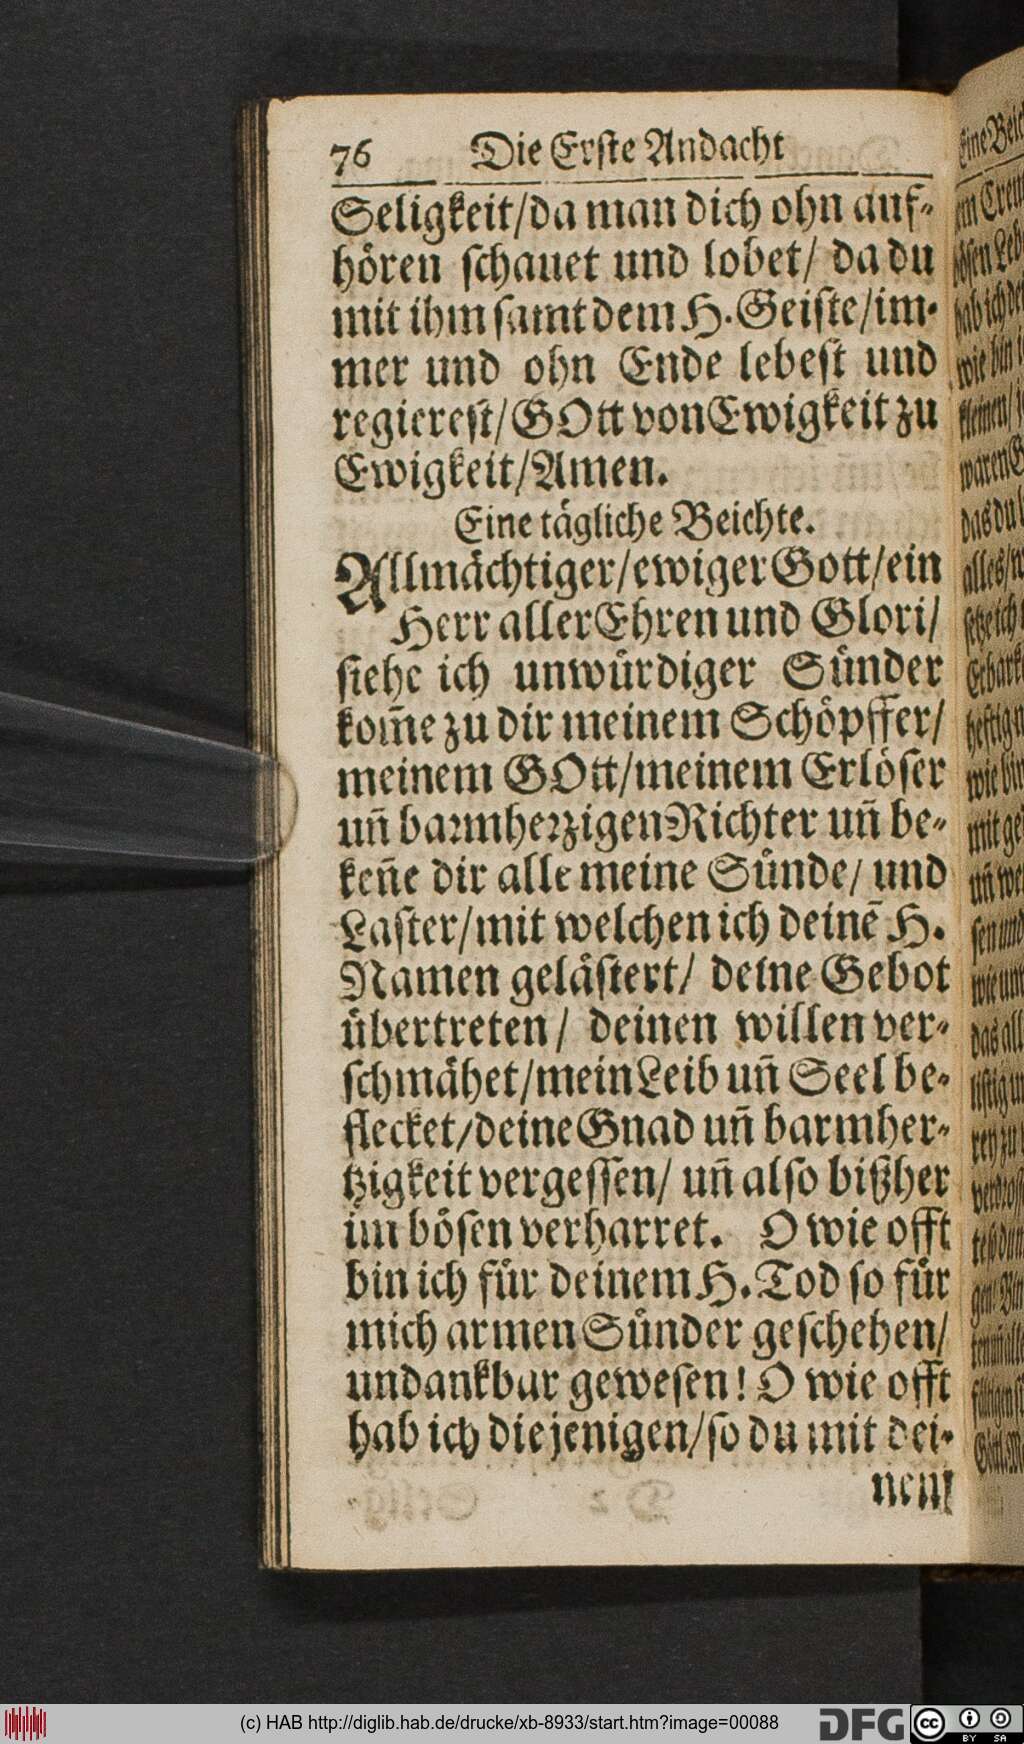 76 Die Erste Andacht
Seligkeit/da man dich ohn auf⸗
hören schauet und lobet/ da du
mit ihm samt dem H. Geiste/im⸗
mer und ohn Ende lebest und
regierest/GOtt von Ewigkeit zu
Ewigkeit/Amen.
Eine tägliche Beichte.
Allmächtiger/ewiger Gott/ein
Herr aller Ehren und Glori/
siehe ich unwürdiger Sünder
kom̃e zu dir meinem Schöpffer/
meinem GOtt/meinem Erlöser
uñ barmherzigen Richter uñ be⸗
keñe dir alle meine Sünde/ und
Laster/mit welchen ich deinẽ H.
Namen gelästert/ deine Gebot
übertreten/ deinen willen ver⸗
schmähet/mein Leib uñ Seel be⸗
flecket/deine Gnad uñ barmher⸗
tzigkeit vergessen/ uñ also bißher
im bösen verharret. O wie offt
bin ich für deinem H. Tod so für
mich armen Sünder geschehen/
undankbar gewesen! O wie offt
hab ich diejenigen/so du mit dei⸗
nem
(c) HAB http://diglib.hab.de/drucke/xb-8933/start.htm?image=00088
DFG
cc BY SA